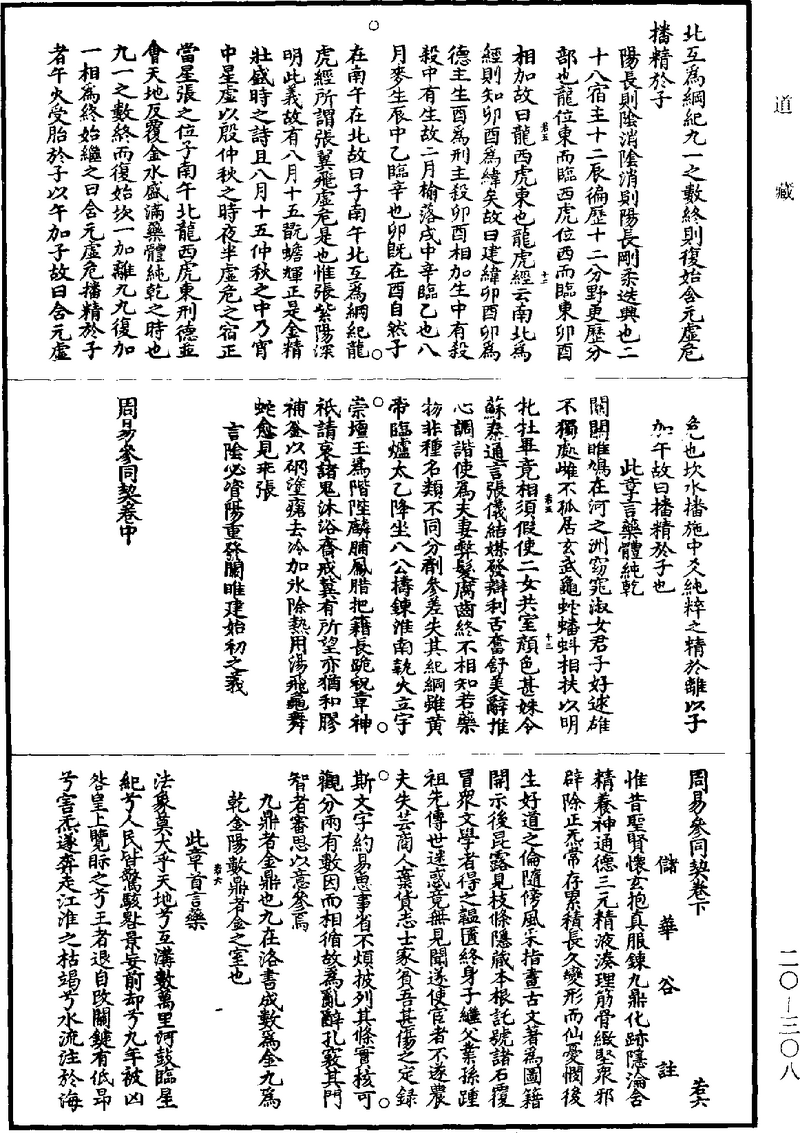 道藏
北互為綱紀九一之數終則復始含元虛危
播精於子
陽長則陰消陰消則陽長剛柔迭興也二
十八宿主十二辰徧歷十二分野更歷分
部也龍位東而臨西虎位西而臨東卯酉
相加故曰龍西虎東也龍虎經云南北為
經則知卯酉為緯矣故曰建緯卯酉卯為
德主生酉為刑主殺卯酉相加生中有殺
殺中有生故二月榆落戌中辛臨乙也八
月麥生辰中乙臨辛也卯既在酉自然子
在南午在北故曰子南午北互為綱紀龍
虎經所謂張翼飛虛危是也惟張紫陽深
明此義故有八月十五翫蟾輝正是金精
壯盛時之詩且八月十五仲秋之中乃宵
中星虛以殷仲秋之時夜半虛危之宿正
當星張之位子南午北龍西虎東刑德並
會天地反覆金水盛滿藥體純乾之時也
九一之數終而復始坎一加離九九復加
一相為終始繼之曰含元虛危播精於子
者午火受胎於子以午加子故曰含元虛
危也坎水播施中爻純粹之精於離以子
加午故曰播精於子也
此章言藥體純乾
關關雎鳩在河之洲窈窕淑女君子好逑雄
不獨處雌不孤居玄武龜蛇蟠虯相扶以明
牝牡畢竟相須假使二女共室顏色甚姝令
蘇秦通言張儀結媒發辯利舌奮舒美辭推
心調諧使為夫妻弊髮腐齒終不相知若藥
物非種名類不同分劑參差失其紀綱雖黃
帝臨爐太乙降坐八公擣鍊淮南執火立宇
崇壇玉為階陛麟脯鳳腊把籍長跪祝章神
祇請哀諸鬼沐浴齋戒冀有所望亦猶和膠
補釜以硇塗瘡去冷加冰除熱用湯飛龜舞
蛇愈見乖張
言陰必資陽重發關雎建始初之義
周易參同契卷中
周易參同契卷下
若六
儲華谷註
惟昔聖賢懷玄抱真服鍊九鼎化跡隱淪含
精養神通德三元精液湊理筋骨緻堅衆邪
辟除正炁常存累積長久變形而仙憂憫後
生好道之倫隨傍風采指畫古文著為圖籍
開示後昆露見枝條隱藏本根託號諸石覆
冒衆文學者得之韞匱終身子繼父業孫踵
祖先傳世迷惑竟無見聞遂使宦者不遂農
夫失芸商人棄貨志士家貧吾甚傷之定錄
斯文字約易思事省不煩披列其條實核可
觀分兩有數因而相循故為亂辭孔竅其門
智者審思以意參焉
九鼎者金鼎也九在洛書成數為金九為
乾金陽數鼎者金之室也
此章首言藥
法象莫大乎天地兮玄溝數萬里河鼓臨星
紀兮人民皆驚駭晷景妄前却兮九年被凶
咎皇上覽眎之兮王者退自改關鍵有低昂
兮害炁遂奔走江淮之枯竭兮水流注於海
二〇—三〇八